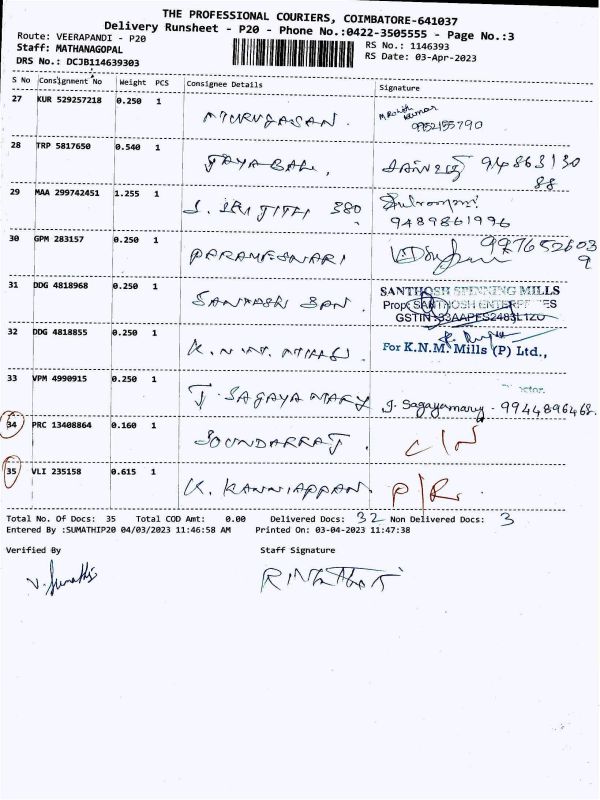 THE PROFESSIONAL COURIERS, COIMBATORE-641037
Delivery Runsheet - P20 - Phone No.:0422-3505555 - Page No.:3
Route: VEERAPANDI - P20
RS No.: 1146393
Staff: MATHANAGOPAL
RS Date: 03-Apr-2023
DRS No.: DCJB114639303
S No Consignment No Weight PCS Consignee Details Signature
27 KUR 529257218 0.250 1 MURUGASAN. M. Rohith Kumar
9952155790
28 TRP 5817650 0.540 1 JAYABAL. 94863130
88
29 MAA 299742451 1.255 1 J. SRIJITH 380
9489861996
30 GPM 283157 0.250 1 PARAMESWARI 997652603
9
31 DDG 4818968 0.250 1 SANTHOSH SPN. SANTHOSH SPENNING MILLS
Prop: SANTHOSH ENTERPRISES
GSTIN :33AAPES2483L1ZU
32 DDG 4818855 0.250 1 K.N.M. MILLS For K.N.M. Mills (P) Ltd.,
33 VPM 4990915 0.250 1 J. SAGAYA MARY J. Sagayamary - 9944896468.
34 PRC 13408864 0.160 1 SOUNDARRAJ. C/N
35 VLI 235158 0.615 1 K. KANNIAPPAN. P/R.
Total No. Of Docs: 35 Total COD Amt: 0.00 Delivered Docs: 32 Non Delivered Docs: 3
Entered By :SUMATHIP20 04/03/2023 11:46:58 AM Printed On: 03-04-2023 11:47:38
Verified By Staff Signature
V. Sumathi